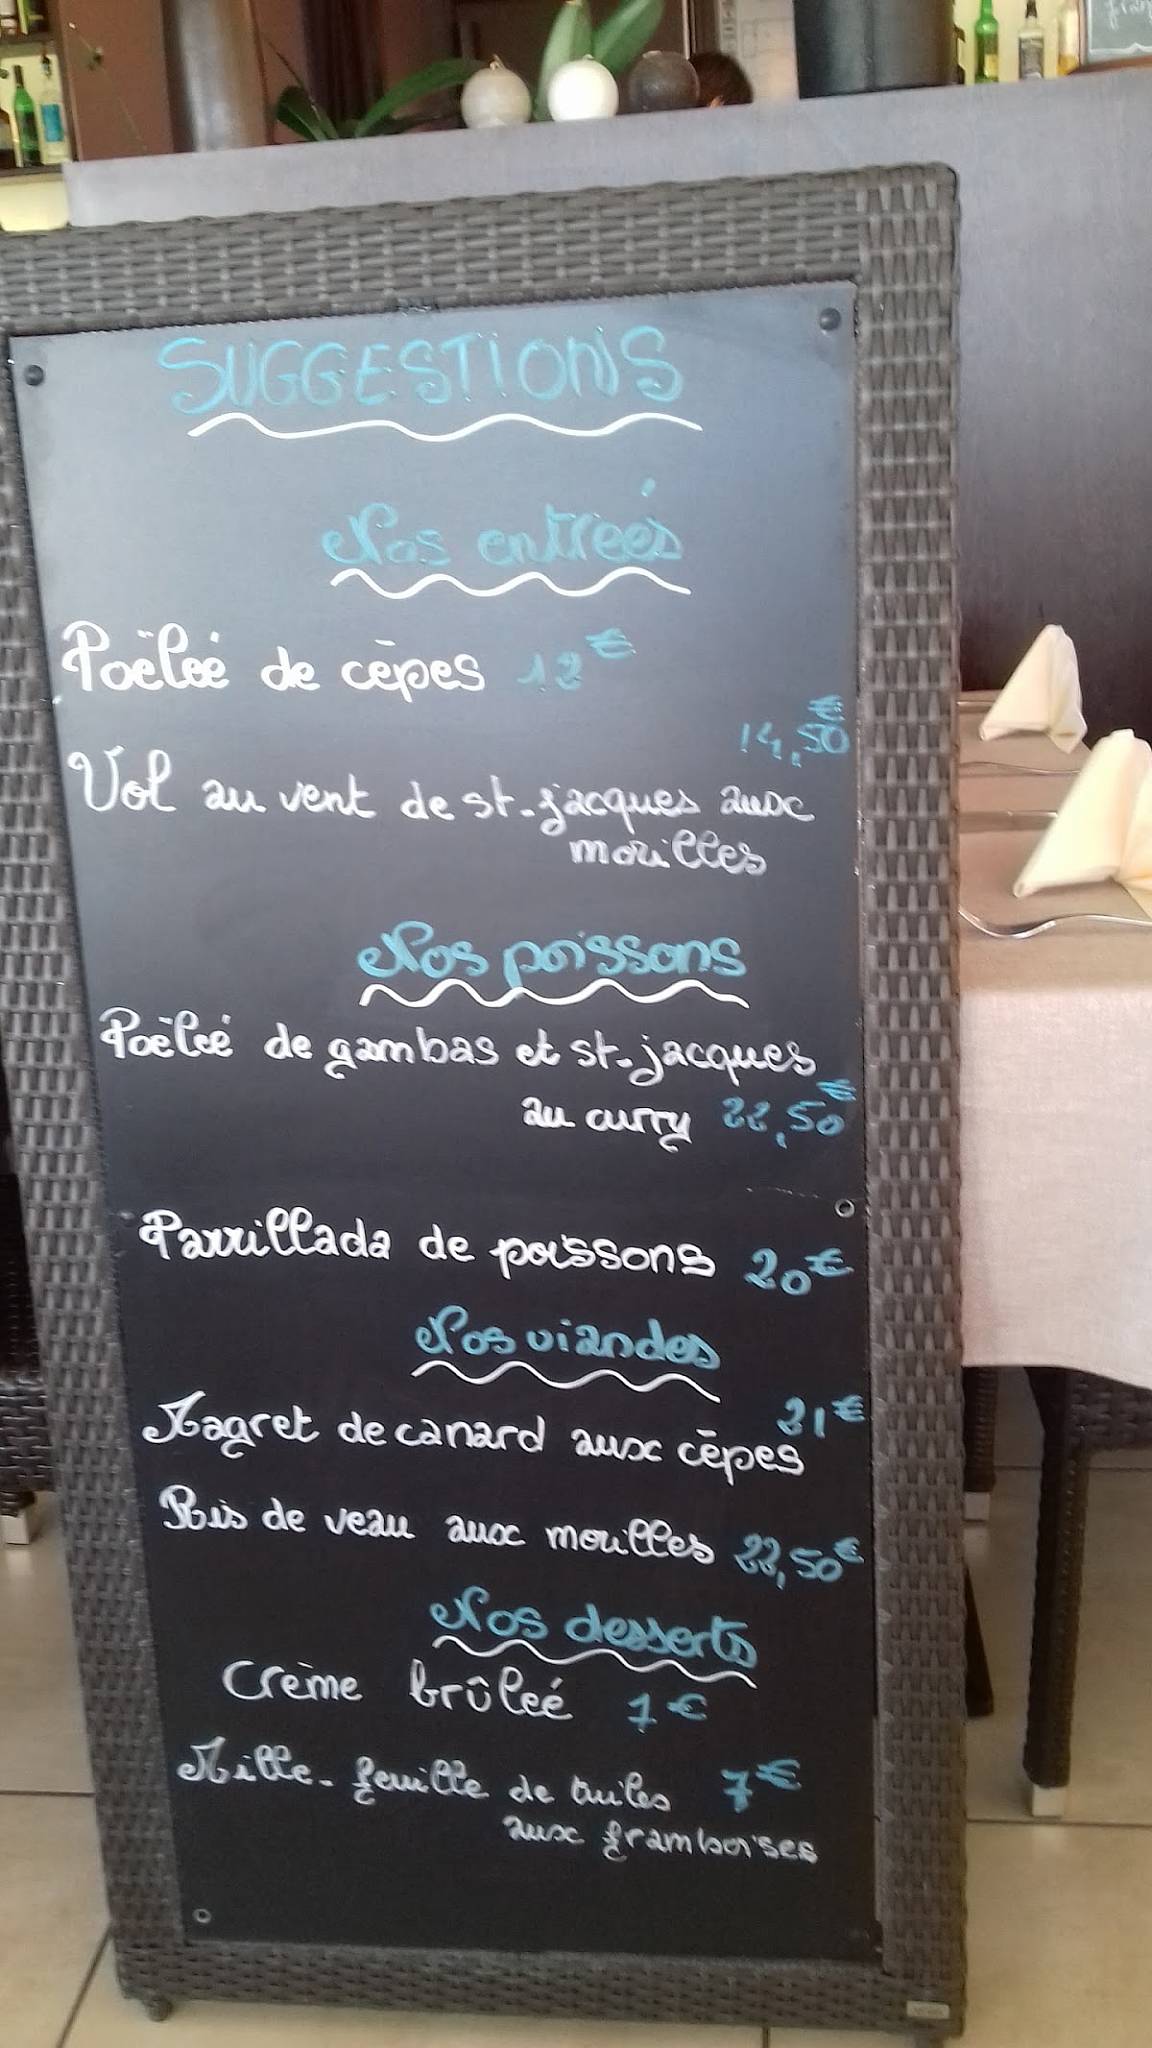 SUGGESTIONS
Nos entrées
Poëleé de cêpes 12€
14,50€
Vol au vent de st-jacques aux
morilles
Nos poissons
Poëleé de gambas et st-jacques
au curry 22,50€
Parrillada de poissons 20€
Nos viandes
21€
Magret de canard aux cêpes
Ris de veau aux morilles 22,50€
Nos desserts
Crème brûleé 7€
Mille-feuille de tuiles 7€
aux framboises